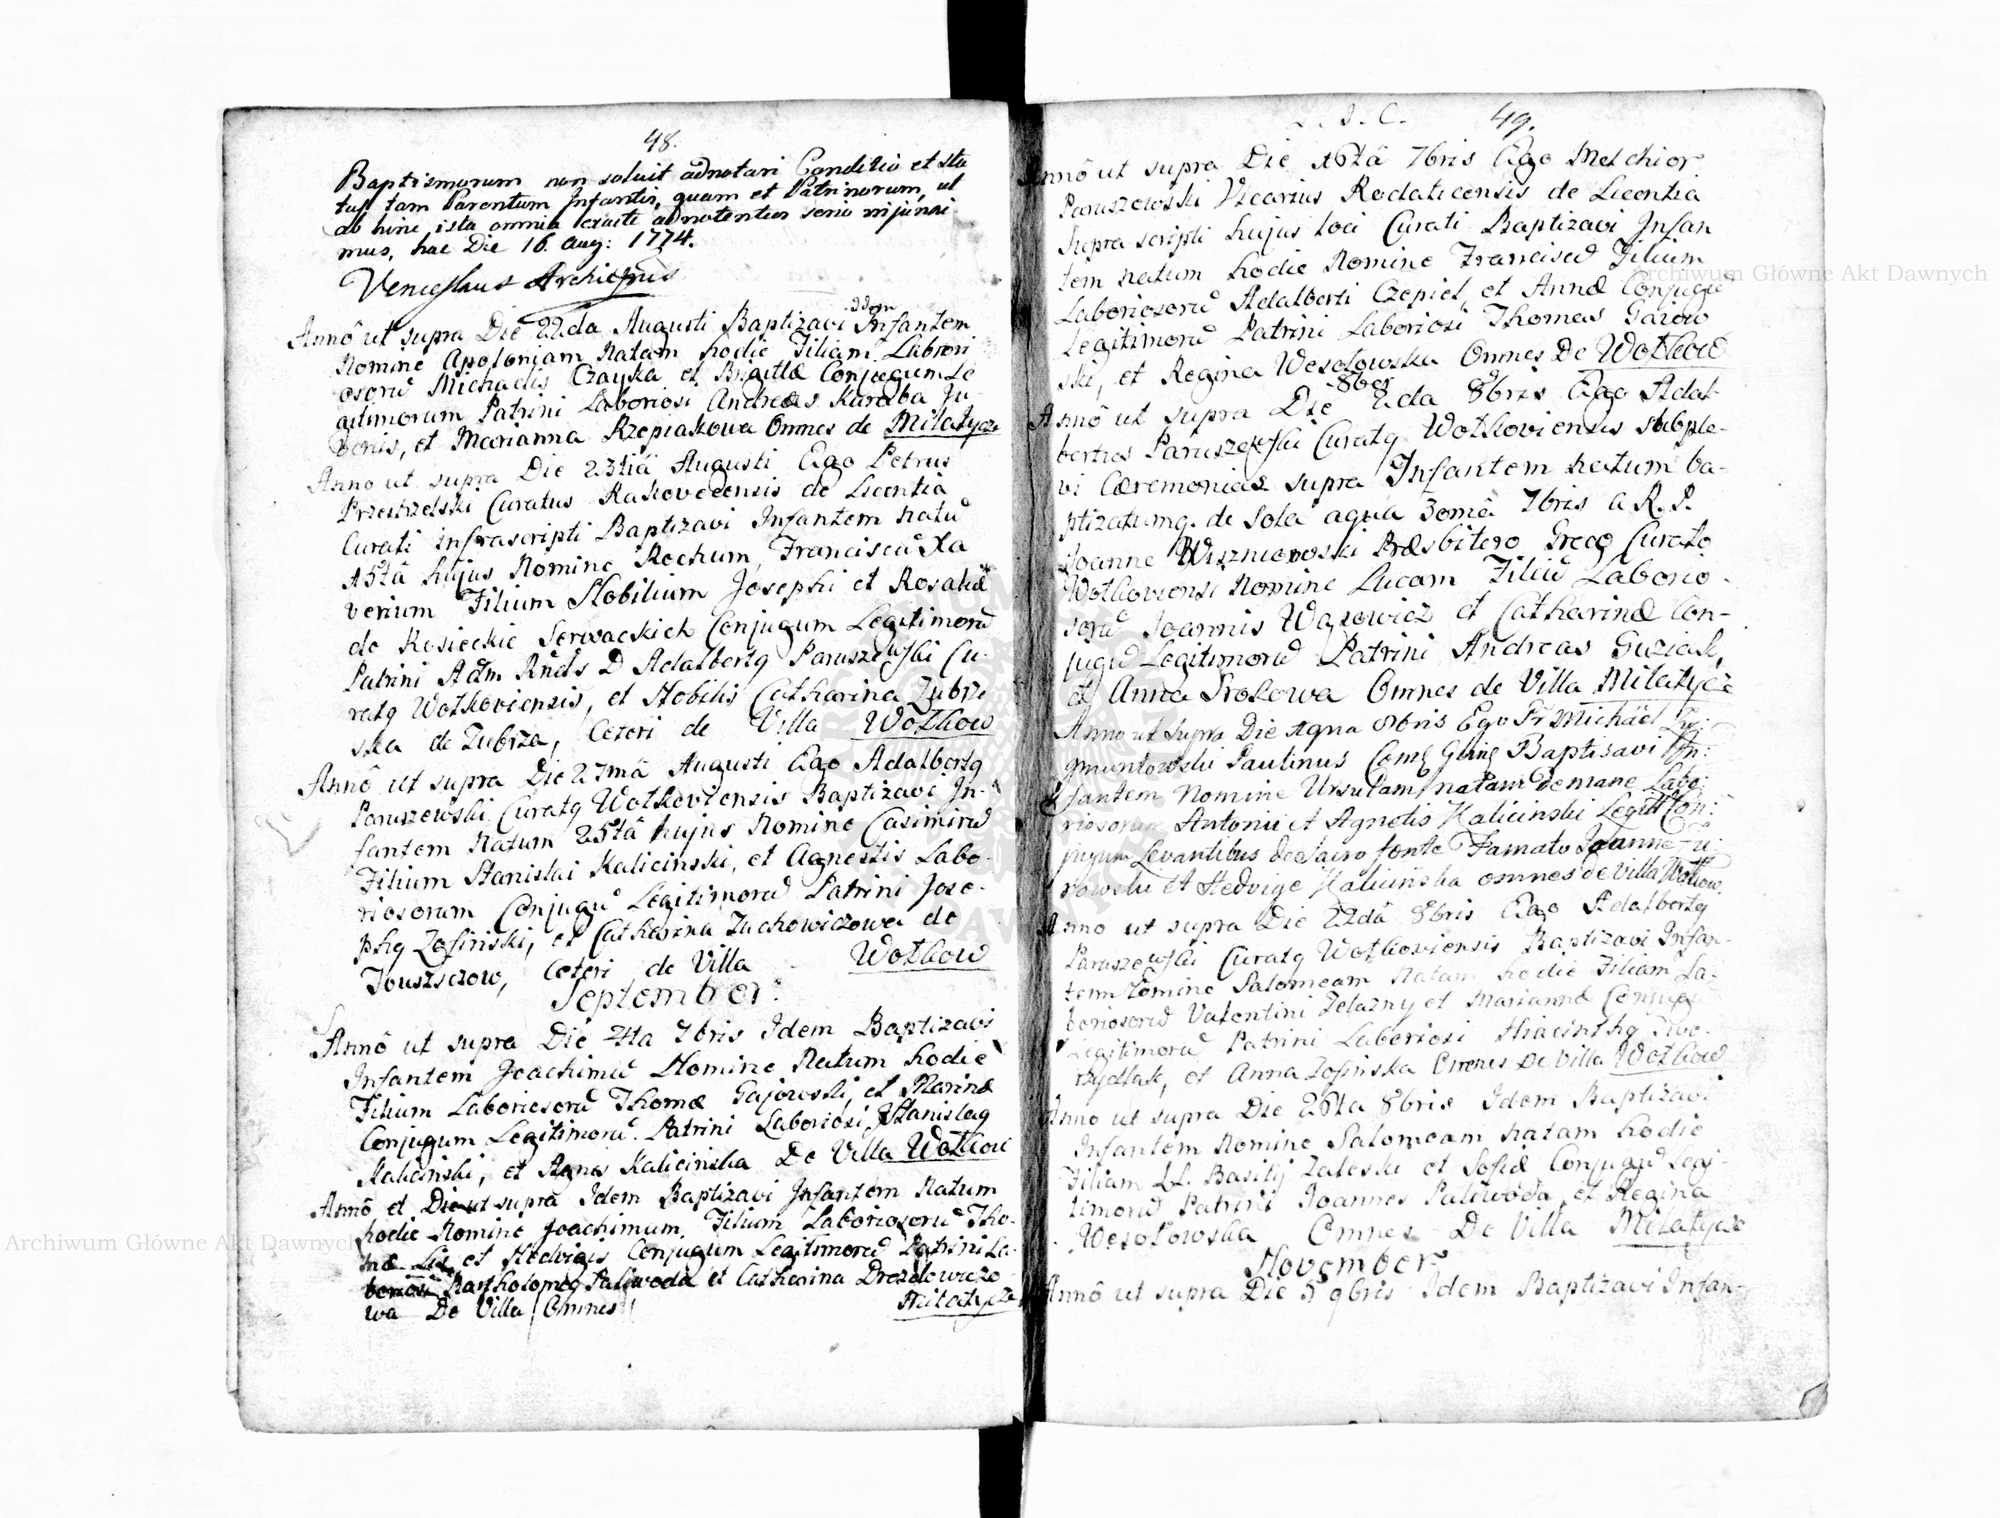 48.
Baptismorum non soluit adnotari Conditio et sta
tus tam Parentum Infantis, quam et Patrinorum, ut
ab hinc ista omnia exacte adnotentur serio injunxi
mus, hac Die 16. Aug: 1774.
Venceslaus
Idem
Annô ut supra Die 22da Augusti Baptizavi Infantem
Nomine Apoloniam Natam hodie Filiam Labori
osorū Michaelis Czayka et Brigittæ Conjugum Le
gitimorum Patrini Laboriosi Andreas Kuraba Ju
venis, et Marianna Rzepiakowa Omnes de Milatycze
Anno ut supra Die 23tiâ Augusti Ego Petrus
Przestrzelski Curatus Rakovecensis de Licentia
Curati infrascripti Baptizavi Infantem natū
15tâ hujus Nomine Rochum, Franciscū Xa
verium Filium Nobilium Josephi et Rosaliæ
de Rosieckie Serwackich Conjugum Legitimorū
Patrini Adm Rnds D Adalbertq Paruszewski Cu-
ratq Wołkoviensis, et Nobilis Catharina Zubrzi
ska de Zubrza, Ceteri de Villa Wołkow
Annô ut supra Die 27mâ Augusti Ego Adalbertq
Paruszewski Curatq Wołkoviensis Baptizavi In-
fantem Natum 25tâ hujus Nomine Casimirū
Filium Stanislai Kalicinski, et Agnetis Labo-
riosorum Conjugū Legitimorū Patrini Jose-
phq Zosinski, et Catharina Zuchowiczowa de
Towszczow, Ceteri de Villa Wołkow
September.
Annô ut supra Die 4ta 7bris Idem Baptizavi
Infantem Joachimū Nomine Natum hodie
Filium Laboriosorū Thomæ Gajowski, et Marinæ
Conjugum Legitimorū. Patrini Laboriosi Stanislaq
Kalicinski, et Agnes Kalicinska De Villa Wołkow
Annô et Die ut supra Idem Baptizavi Infantem Natum
hodie Nomine Joachimum, Filium Laboriosorū Tho-
mæ Lis et Hedvigis Conjugum Legitimorū Patrini La-
boriosi Bartholomeq Paliwoda et Catharina Drozdowiczo
wa De Villa Omnes Milatycze
49.
Annô ut supra Die 16tâ 7bris Ego Melchior
Paruszowski Vicarius Rodaticensis de Licentia
supra scripti hujus loci Curati Baptizavi Infan
tem natum hodie Nomine Franciscū Filium
Laboriosorū Adalberti Czepiel, et Annæ Conjugū
Legitimorū Patrini Laboriosi Thomas Gaiow
ski, et Regina Wesołowska Omnes De Wołkow
8ber
Annô ut supra Die 2da 8bris Ego Adal-
bertus Paruszewski Curatq Wołkoviensis supple-
vi Cæremonias supra Infantem natum ba-
ptizatumq. de sola aqua 30mâ 7bris a R. P.
Joanne Wiszniowski Præsbitero Græco Curato
Wołkoviensi Nomine Lucam Filiū Laborio-
sorū Joannis Wąsowicz et Catharinæ Con-
jugū Legitimorū Patrini Andreas Guziak,
et Anna Srokowa Omnes de Villa Milatycze
Anno ut Supra Die 8bris Ego Fr Michael Zy:
gmuntowski Paulinus Baptisavi In:
fantem Nomine Ursulam natam de mane Labo:
riosorum Antonii et Agnetis Kalicinski Legitt Con:
jugum Levantibus de Sacro fonte Famato Joanne
et Hedvige Kalicinska omnes de Villa Wołkow
Anno ut supra Die 22dâ 8bris Ego Adalbertq
Paruszewski Curatq Wołkoviensis Baptizavi Infan-
tem Nomine Salomeam Natam hodie Filiam La-
boriosorū Valentini Zelazny et Mariannæ Conjugū
Legitimorū Patrini Laboriosi Hiacinthq Two-
rzydlak, et Anna Zosinska Omnes De Villa Wołkow
Anno ut supra Die 26ta 8bris Idem Baptizavi
Infantem Nomine Salomeam natam hodie
Filiam LL. Basilij Zaleski et Sofiæ Conjugū Legi-
timorū Patrini Joannes Paliwoda, et Regina
Wesołowska Omnes De Villa Milatycze
November
Annô ut supra Die 5 9bris Idem Baptizavi Infan-
Archiwum Główne Akt Dawnych
Archiwum Główne Akt Dawnych